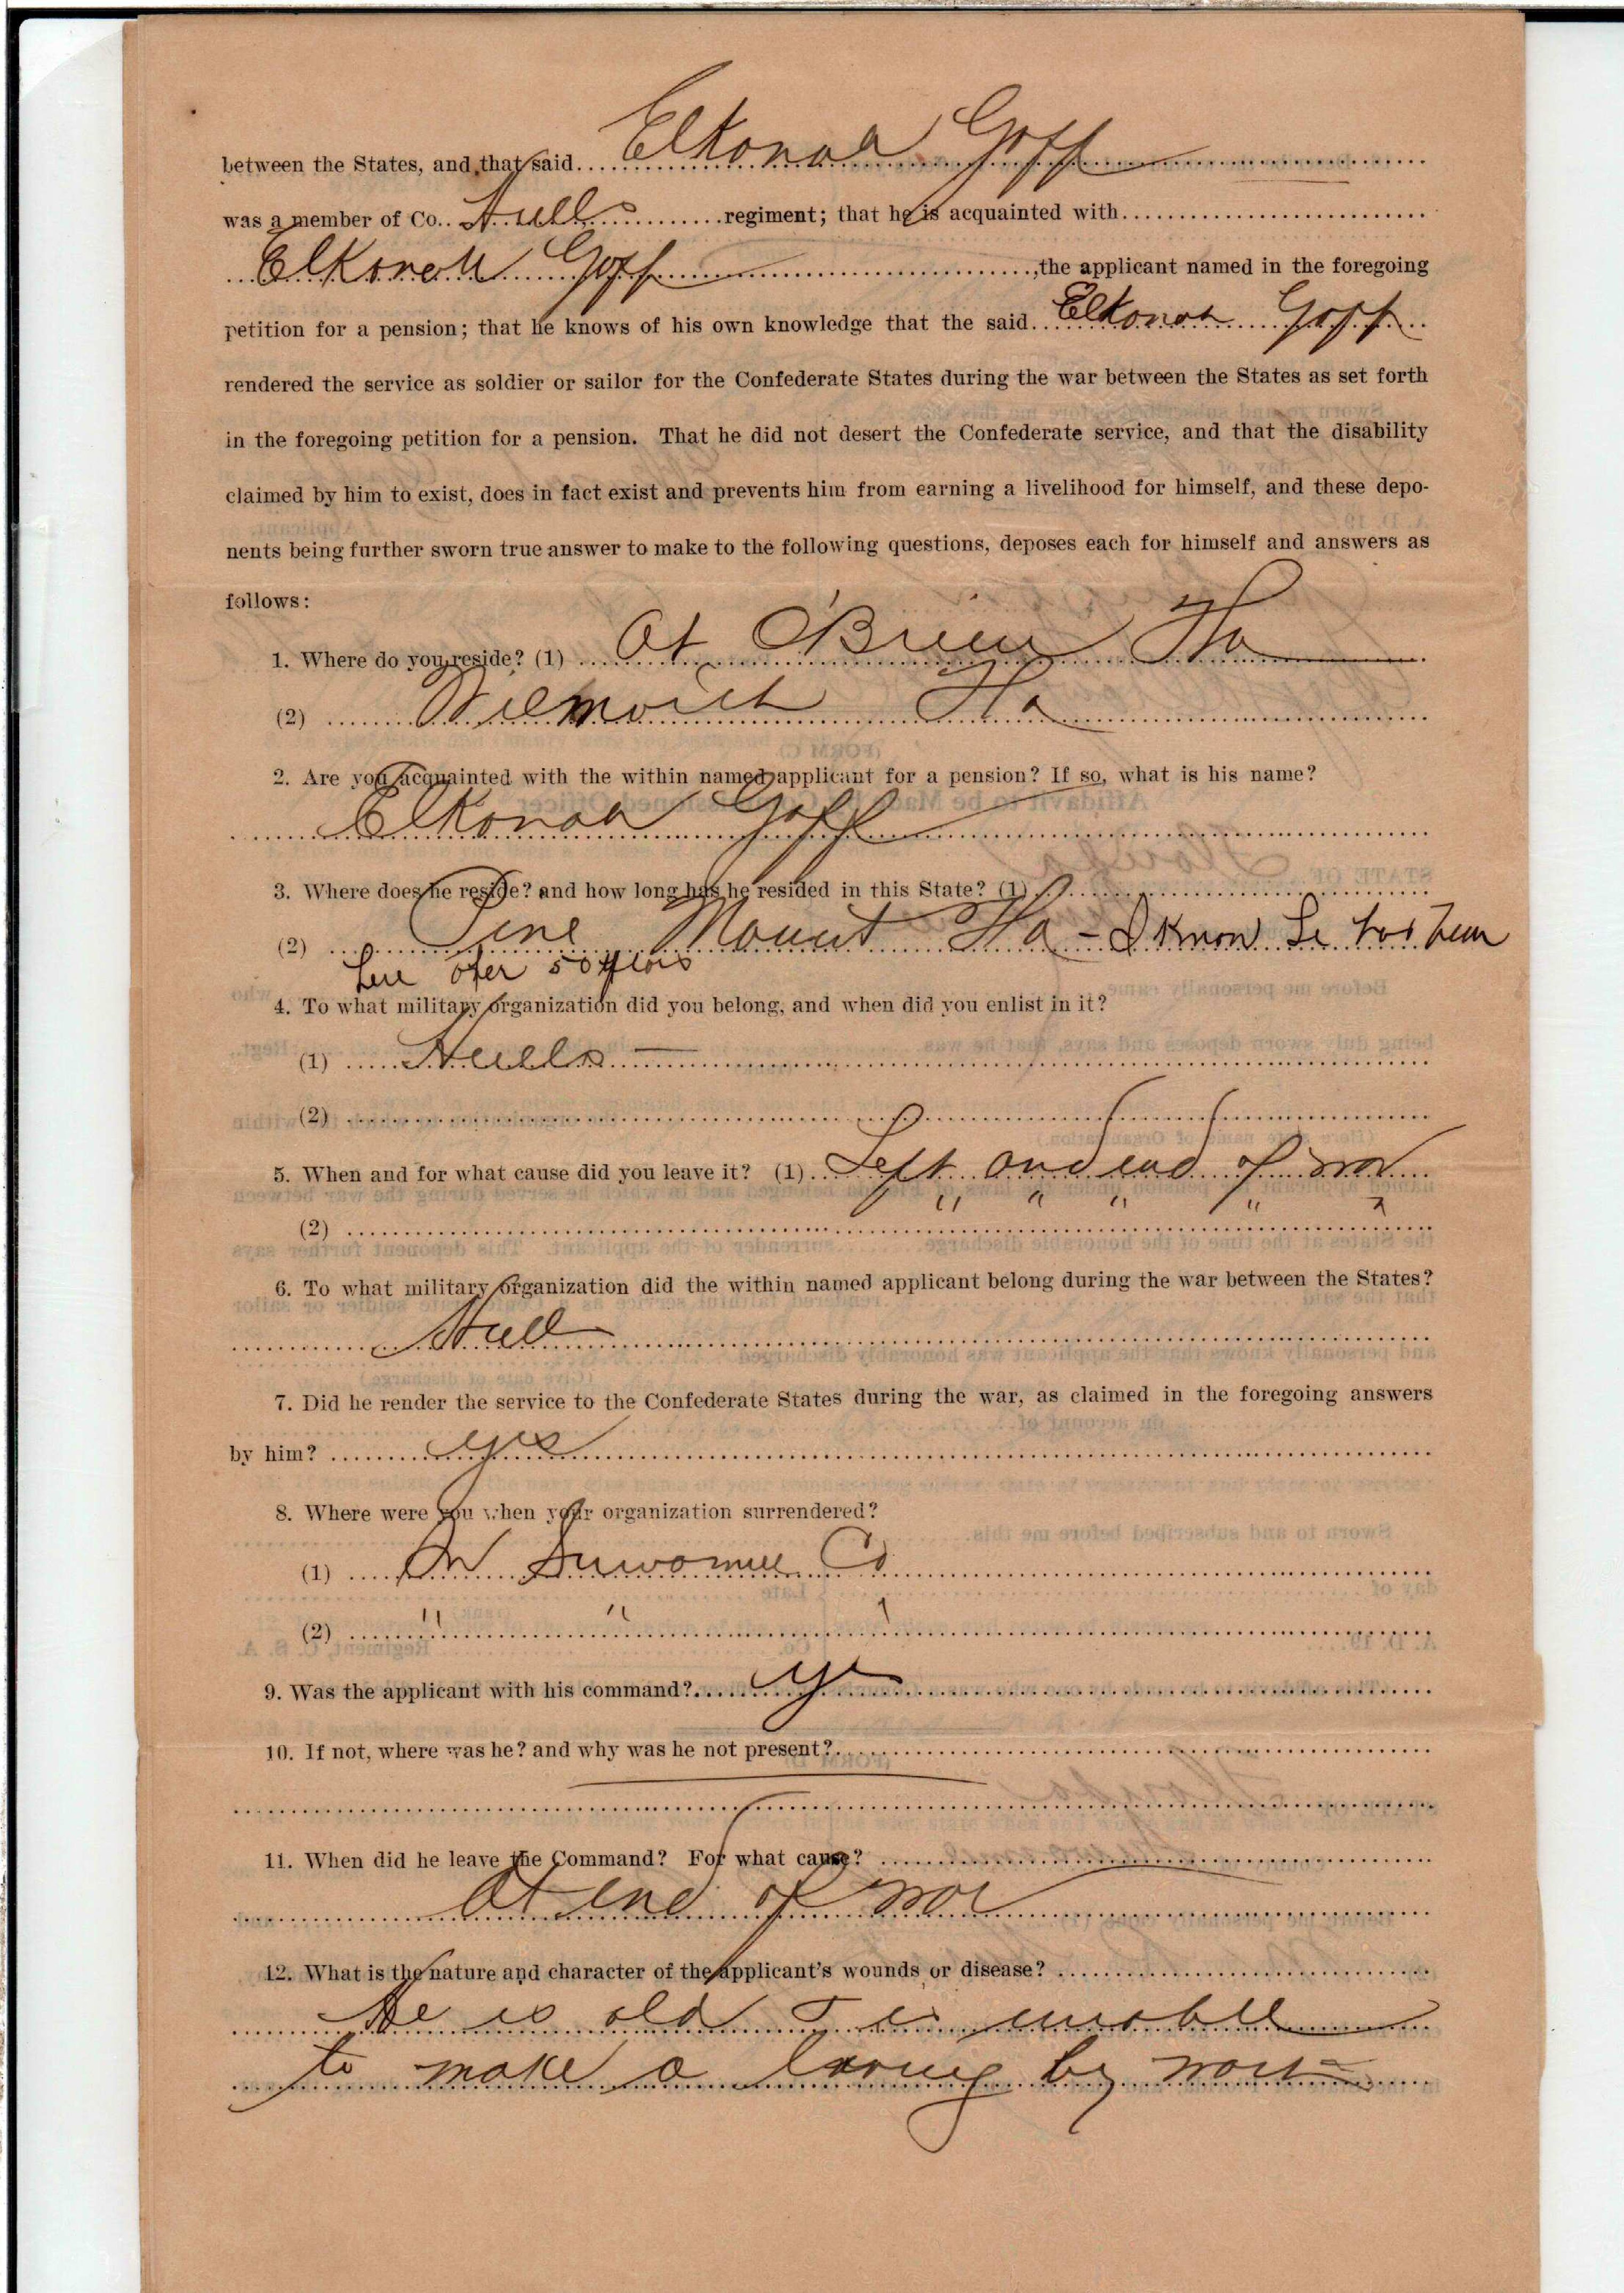 between the States, and that said Elkonah Goff
was a member of Co. Hulls regiment; that he is acquainted with
Elkonah Goff, the applicant named in the foregoing
petition for a pension; that he knows of his own knowledge that the said Elkonah Goff
rendered the service as soldier or sailor for the Confederate States during the war between the States as set forth
in the foregoing petition for a pension. That he did not desert the Confederate service, and that the disability
claimed by him to exist, does in fact exist and prevents him from earning a livelihood for himself, and these depo-
nents being further sworn true answer to make to the following questions, deposes each for himself and answers as
follows:
1. Where do you reside? (1) At O'Brien Fla
(2) Fla
2. Are you acquainted with the within named applicant for a pension? If so, what is his name?
Elkonah Goff
3. Where does he reside? and how long has he resided in this State? (1)
(2) Pine Mount Fla - I know he has been
here over 50 years
4. To what military organization did you belong, and when did you enlist in it?
(1) Hulls
(2)
5. When and for what cause did you leave it? (1) Left and end of war
(2) " " " " "
6. To what military organization did the within named applicant belong during the war between the States?
Hull
7. Did he render the service to the Confederate States during the war, as claimed in the foregoing answers
by him? yes
8. Where were you when your organization surrendered?
(1) In Suwannee Co
(2) " " "
9. Was the applicant with his command? yes
10. If not, where was he? and why was he not present?
11. When did he leave the Command? For what cause?
At end of war
12. What is the nature and character of the applicant's wounds or disease?
He is old & is unable
to make a living by work